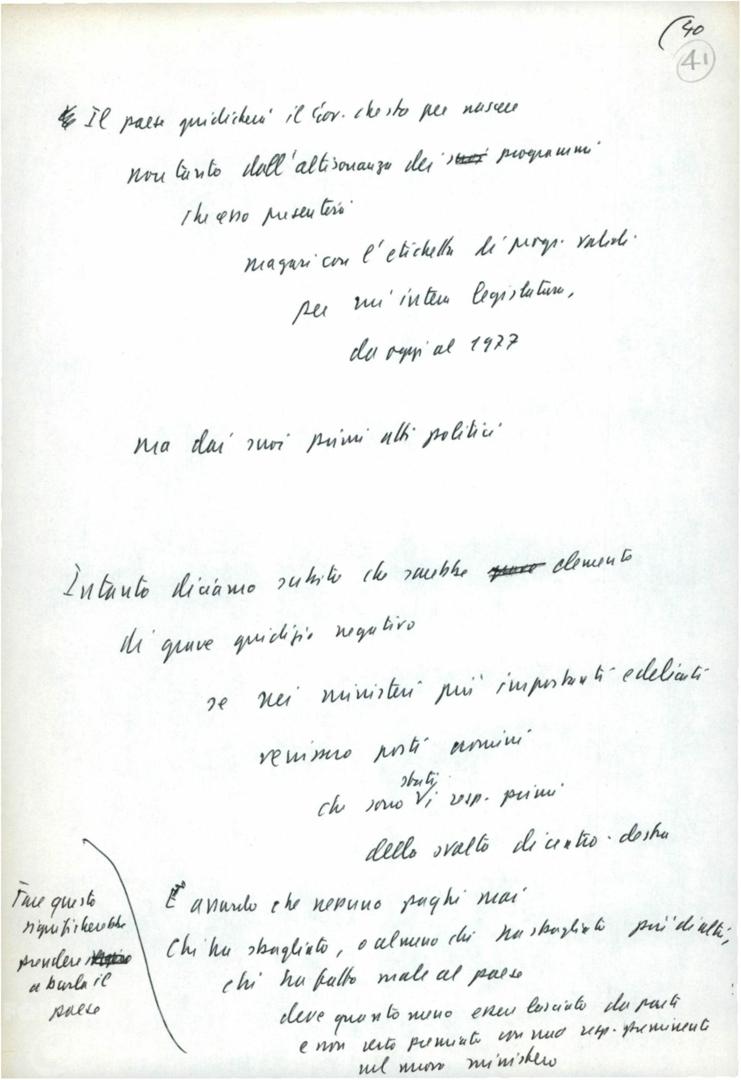 (40
41
Il paese giudicherà il Gov. che sta per nascere
non tanto dall'altisonanza dei suoi programmi
che esso presenterà
magari con l'etichetta di progr. validi
per un'intera legislatura,
da oggi al 1977
ma dai suoi primi atti politici
Intanto diciamo subito che sarebbe elemento
di grave giudizio negativo
se nei ministeri più importanti e delicati
venissero posti uomini
che sono stati i resp. primi
della svolta di centro-destra
Fare questo
significherebbe
prendere
a burla il
paese
È assurdo che nessuno paghi mai
Chi ha sbagliato, o almeno chi ha sbagliato più di altri,
chi ha fatto male al paese
deve quanto meno essere lasciato da parte
e non certo premiato con una resp. preminente
nel nuovo ministero